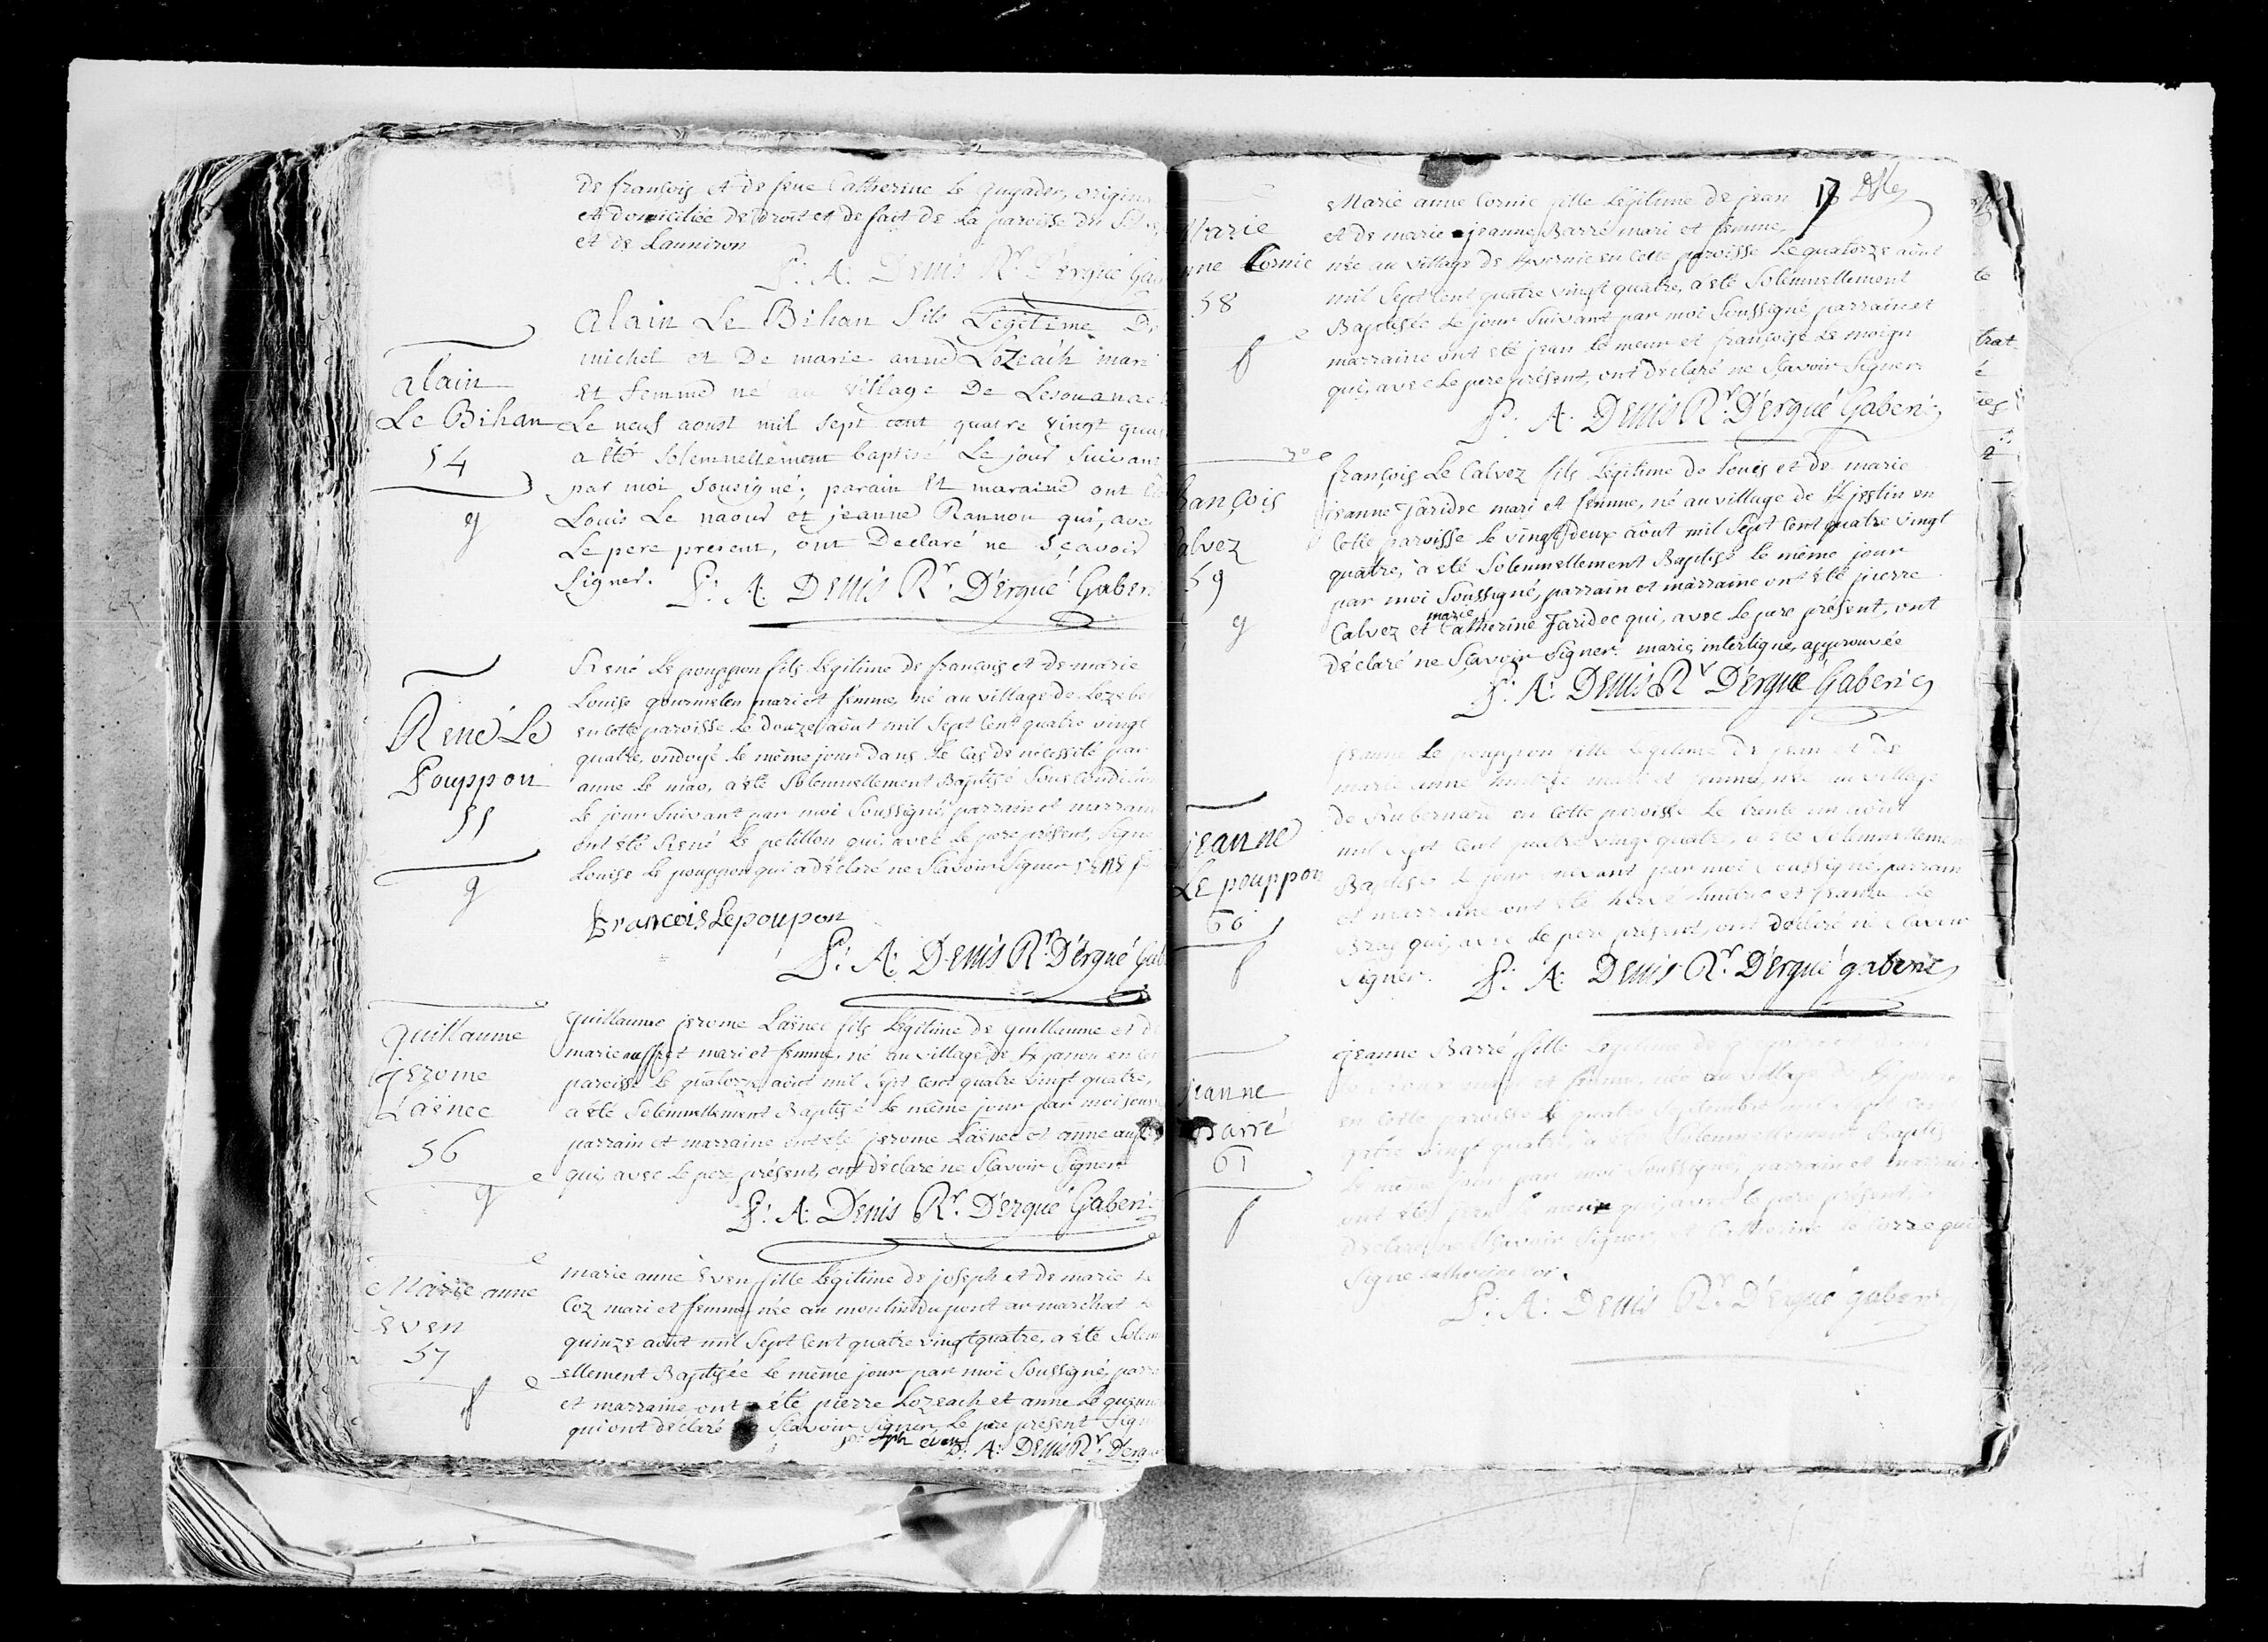 de françois et de feue Catherine Le guyader, origin
et domiciliée de droit et de fait de La paroisse du
et de Lanniron
F: A: Denis Rr. D'ergué Gab
alain
Le Bihan
54
g
alain Le Bihan fils Legitime De
michel et De marie anne Lozeach mari
Et femme né au village De Lesouanach
Le neuf aoust mil sept cent quatre vingt qua
a été Solemnellement baptisé Le jour Suivant
par moi Sousigné; parain Et maraine ont
Louis Le naour et jeanne Rannou qui, avec
Le pere present, ont Declaré ne Sçavoir
Signer. F: A: Denis Rr. D'ergué Gaberi
René Le
Pouppon
55
g
René Le pouppon fils Légitime de françois et de marie
Louise gourmelen mari et femme, né au village de Lezebe
en cette paroisse Le douze août mil Sept Cent quatre vingt
quatre, ondoyé Le même jour dans Le Cas de nécessité par
anne Le mao, a été Solemnellement Baptisé Sous Condition
Le jour Suivant par moi Soussigné, parrain et marraine
ont été René Le petillon qui, avec Le pere présent, Signe
Louise Le pouppon qui a déclaré ne Sçavoir Signer
francois Le poupon
F: A: Denis Rr. D'ergué Gab
guillaume
jerome
Laënec
56
g
guillaume jerome Laënec fils Légitime de guillaume et d
marie auffret mari et femme, né au village de Kjanou en
paroisse Le quatorze août mil Sept Cent quatre vingt quatre,
a été Solemnellement Baptisé Le même jour par moi sous
parrain et marraine ont été jerome Laënec et anne auf
qui, avec Le pere présent, ont déclaré ne Sçavoir Signer
F: A: Denis Rr. D'ergué Gaberic
Marie anne
Even
57
f
marie anne Even fille Légitime de joseph et de marie Le
Coz mari et femme, née au moulin du pont ar marchat Le
quinze août mil Sept Cent quatre vingt quatre, a été Solem
ellement Baptisée Le même jour par moi Soussigné, parr
et marraine ont été pierre Lozeach et anne Le
qui ont déclaré ne Sçavoir Signer, Le pere présent Sign
even F: A: Denis Rr. D'ergu
17
Marie
nne Cornic
58
f
Marie anne Cornic fille Légitime de jean
et de marie jeanne Barré mari et femme,
née au village de en cette paroisse Le quatorze août
mil Sept Cent quatre vingt quatre, a été Solemnellement
Baptisée Le jour Suivant par moi Soussigné, parrain et
marraine ont été jean Le meur et françoise Le moign
qui, avec Le pere présent, ont déclaré ne Sçavoir Signer
F: A: Denis Rr. D'ergué Gaberic
rançois
alvez
59
g
françois Le Calvez fils Légitime de Louis et de marie
jeanne jaridec mari et femme, né au village de Kjestin en
Cette paroisse Le vingt deux août mil Sept Cent quatre vingt
quatre, a été Solemnellement Baptisé Le même jour
par moi Soussigné, parrain et marraine ont été pierre
Calvez et marie Catherine jaridec qui, avec Le pere présent, ont
déclaré ne Sçavoir Signer. marie, interligne, approuvée
F: A: Denis Rr D'ergué Gaberic
jeanne
Le pouppon
60
f
jeanne Le pouppon fille Légitime de jean et de
marie anne mari et femme, née au village
de en cette paroisse Le trente un août
mil Sept Cent quatre vingt quatre, a été Solemnellemen
Baptisée Le jour Suivant par moi Soussigné, parrain
et marraine ont été hervé et jeanne Le
Bras qui, avec Le pere présent, ont déclaré ne Sçavoir
Signer. F: A: Denis Rr. D'ergué gaberic
jeanne
Barré
61
f
jeanne Barré fille Légitime de
mari et femme, née au village de
en Cette paroisse Le quatre Septembre mil Sept Cent
quatre vingt quatre a été Solemnellement Baptis
Le même jour par moi Soussigné, parrain et marraine
ont été qui, avec Le pere présent,
déclaré ne Sçavoir Signer, et Catherine Le Corre qui
Signe Catherine Cor
F: A: Denis Rr. D'ergué gaberic